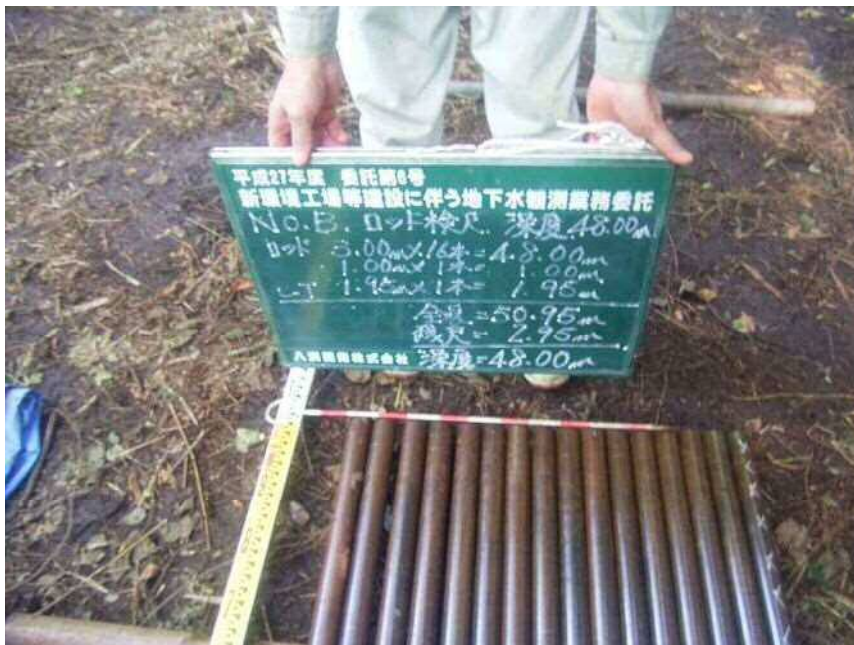 平成27年度 委託第6号
新環境工場等建設に伴う地下水観測業務委託
No.B. ロッド検尺. 深度.48.00m
ロッド 3.00m×16本=48.00m
1.00m×1本= 1.00m
1.95m×1本= 1.95m
全長=50.95m
残尺= 2.95m
株式会社 深度=48.00m